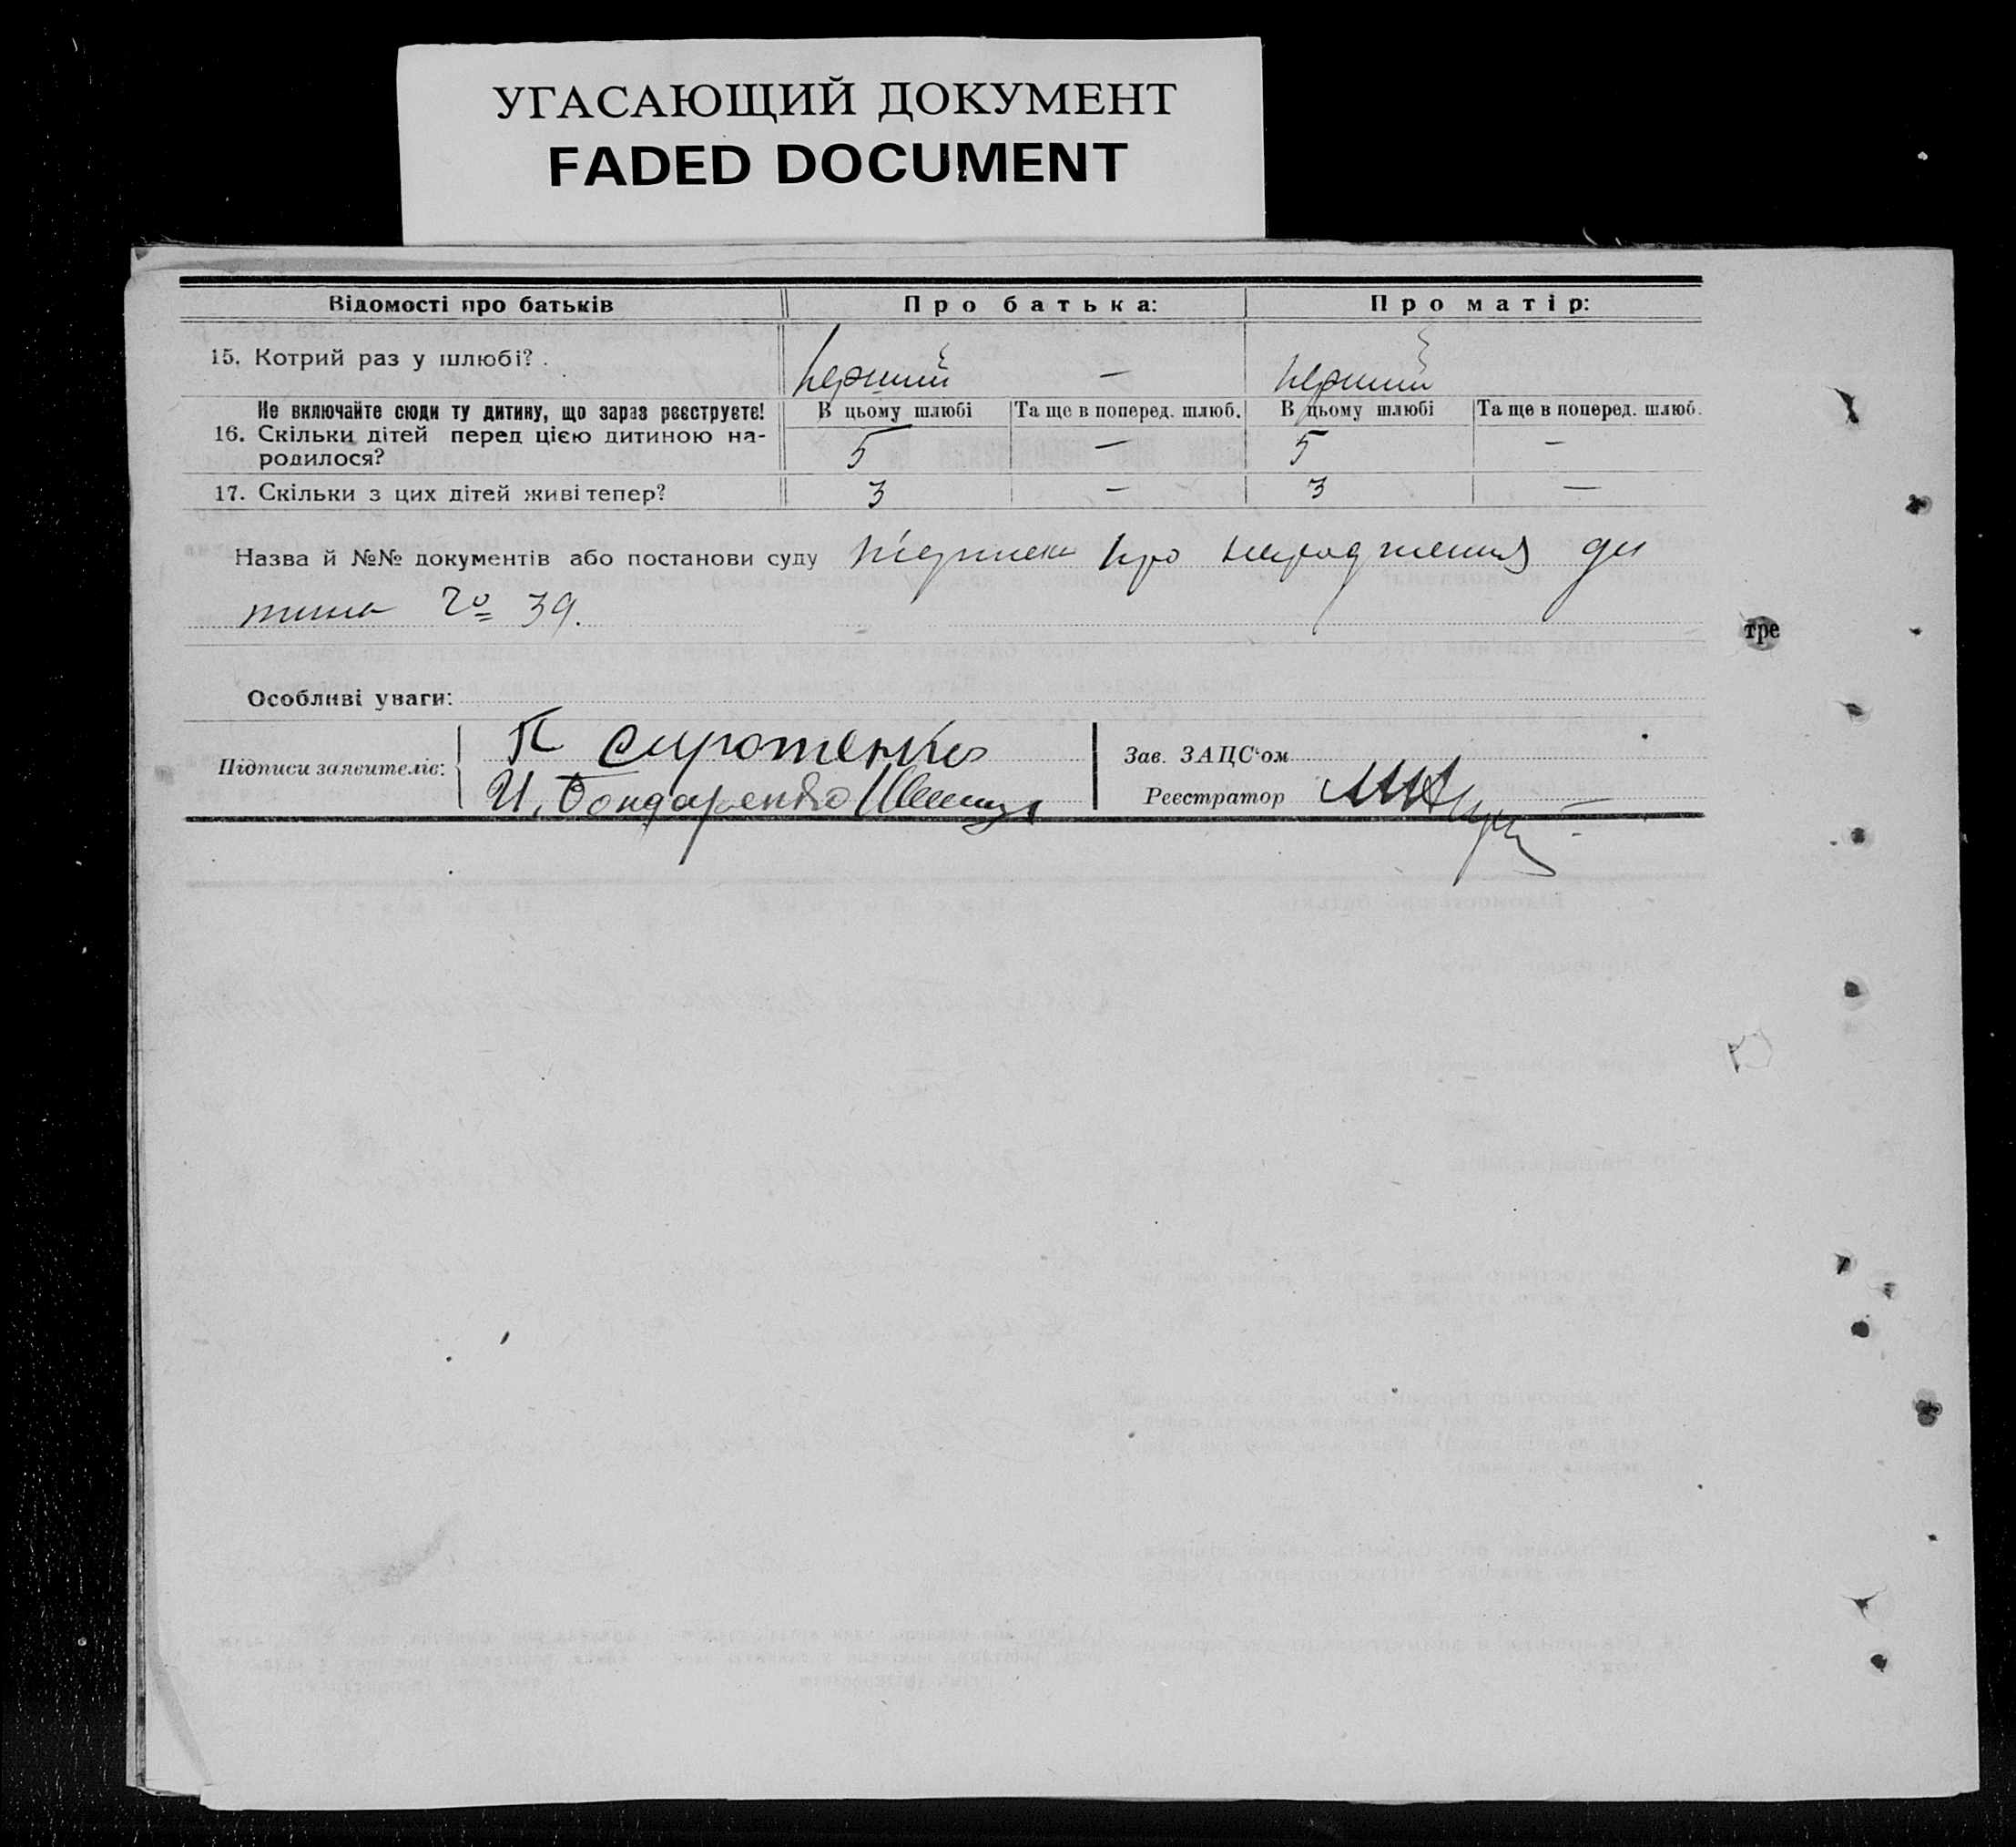 УГАСАЮЩИЙ ДОКУМЕНТ
FADED DOCUMENT
Відомості про батьків Про батька: Про матір:
15. Котрий раз у шлюбі? . перший — перший
Не включайте сюди ту дитину, що зараз реєструєте! В цьому шлюбі Та ще в поперед. шлюб. В цьому шлюбі Та ще в поперед. шлюб.
16. Скільки дітей перед цією дитиною на-
родилося? 5 — 5 —
17. Скільки з цих дітей живі тепер? 3 — 3 —
Назва й №№ документів або постанови суду про народження ди
тини 39.
тре
Особливі уваги:
Підписи заявителів: П Сиротенко
И. Бондаренко
Зав. ЗАЦС'ом
Реєстратор